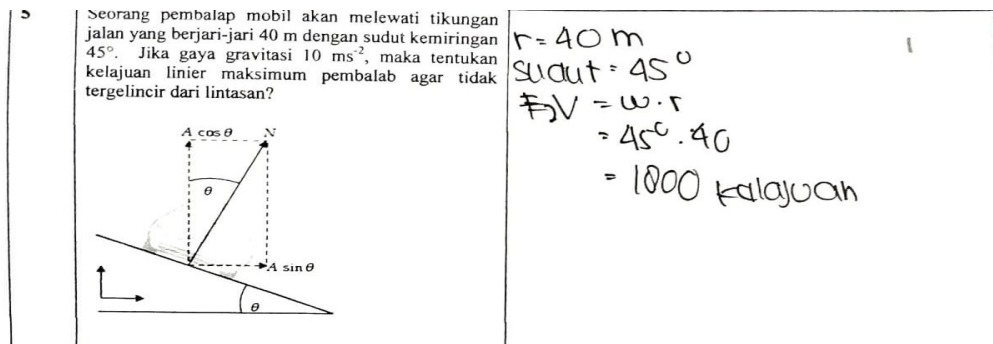 5
Seorang pembalap mobil akan melewati tikungan
jalan yang berjari-jari 40 m dengan sudut kemiringan
45°. Jika gaya gravitasi 10 ms⁻², maka tentukan
kelajuan linier maksimum pembalab agar tidak
tergelincir dari lintasan?
A cos θ N
θ
A sin θ
θ
r = 40 m
sudut = 45°
V = w . r
= 45° . 40
= 1800 kalajuan
1